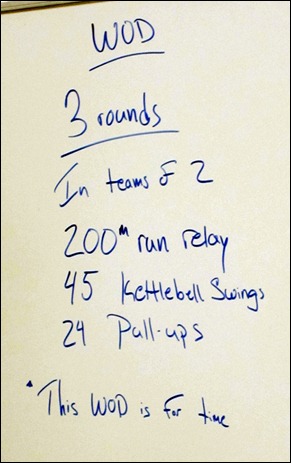 WOD
3 rounds
In teams of 2
200m run relay
45 Kettlebell Swings
24 Pull-ups
* This WOD is For time